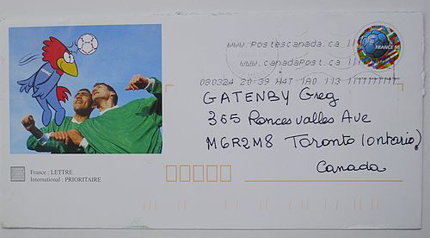 www.postescanada.ca
www.canadapost.ca
080324 20:39 H4T 1A0 113
FRANCE 98
GATENBY Greg
365 Roncesvalles Ave
M6R2M8 Toronto (ontario)
Canada
France : LETTRE
International : PRIORITAIRE